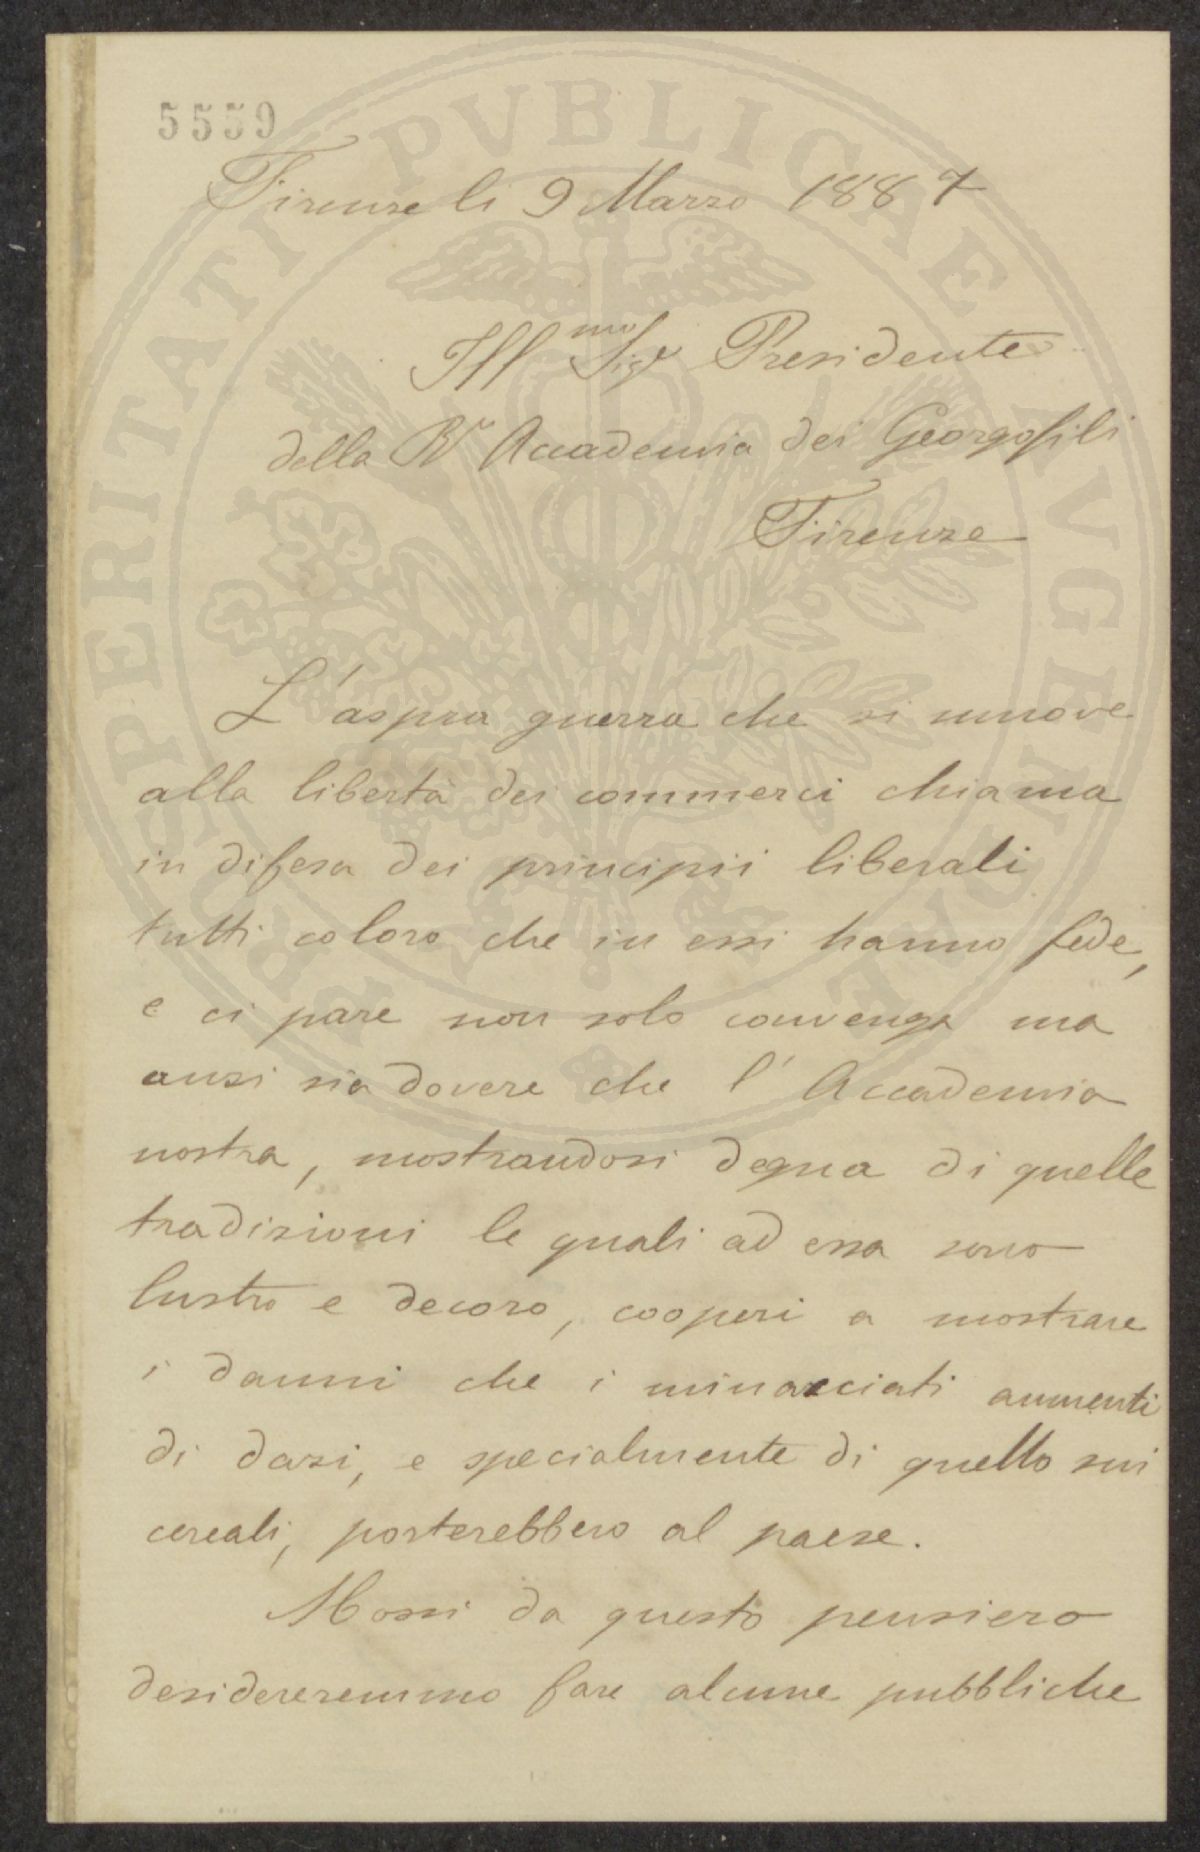 5559
Firenze li 9 Marzo 1887
Ill.mo Sigr Presidente
della R. Accademia dei Georgofili
Firenze
L'aspra guerra che si muove
alla libertà dei commerci chiama
in difesa dei principii liberali
tutti coloro che in essi hanno fede,
e ci pare non solo convenga ma
anzi sia dovere che l'Accademia
nostra, mostrandosi degna di quelle
tradizioni le quali ad essa sono
lustro e decoro, cooperi a mostrare
i danni che i minacciati aumenti
di dazi, e specialmente di quello sui
cereali, porterebbero al paese.
Mossi da questo pensiero
desidereremmo fare alcune pubbliche
PROSPERITATI PVBLICAE AVGENDAE